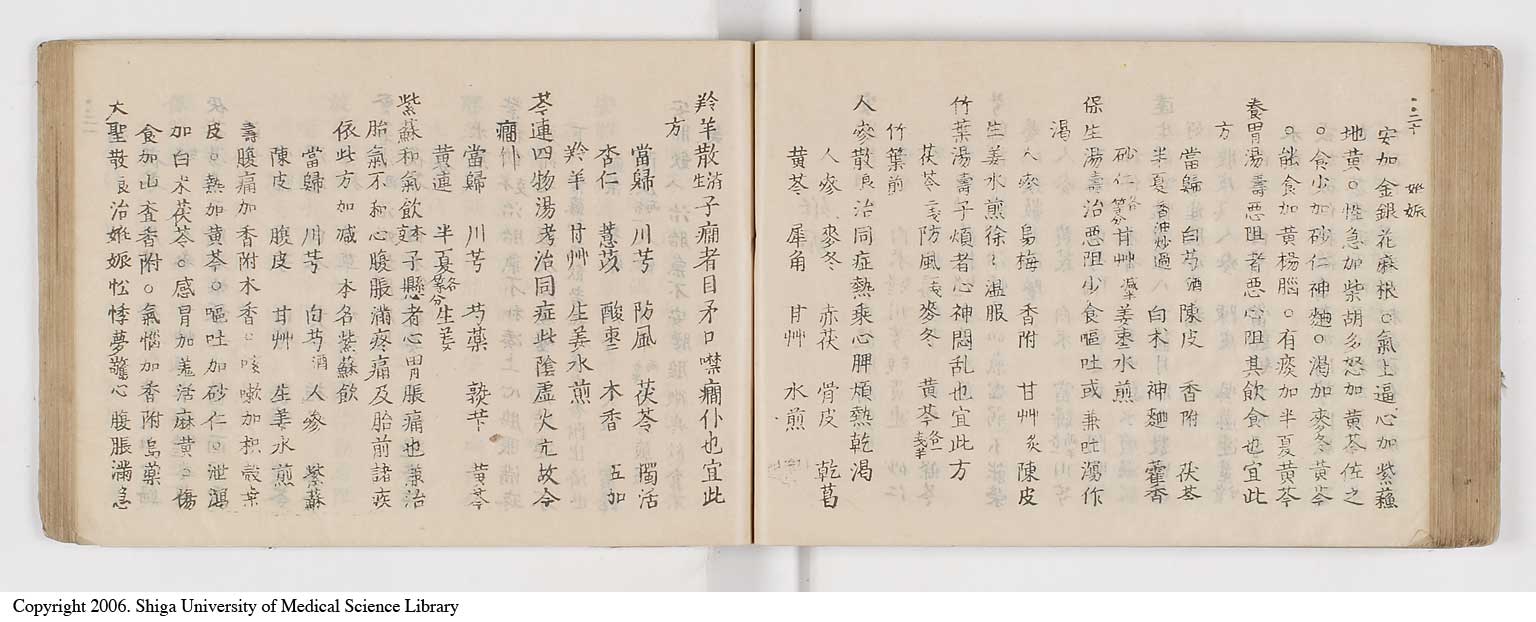 妊娠
安加金銀花麻根○氣上逼心加紫蘓
地黄○性急加柴胡多怒加黄芩佐之
○食少加砂仁神麯○渇加麥冬黄芩
○能食加黄楊腦○有痰加半夏黄芩
養胃湯壽惡阻者惡心阻其飲食也宜此
方
當歸 白芍酒 陳皮 香附 茯苓
半夏香油炒過 白朮 神麯 藿香
砂仁各等分甘艸减半姜棗水煎
保生湯壽治惡阻少食嘔吐或兼吐瀉作
渇
人參 烏梅 香附 甘艸炙 陳皮
生姜水煎徐々温服
竹葉湯壽子煩者心神悶乱也宜此方
茯苓二戔防風一戔麥冬 黄芩各一戔半
竹葉煎
人參散良治同症熱乘心脾煩熱乾渇
人參 麥冬 赤茯 骨皮 乾葛
黄芩 犀角 甘艸 水煎
羚羊散濟生子癇者目矛口噤癇仆也宜此
方
當歸 川芎 防風 茯苓 獨活
杏仁 薏苡 酸棗 木香 五加
羚羊甘艸生姜水煎
芩連四物湯考治同症此陰虚火亢故令
癇仆
當歸 川芎 芍藥 熟芐 黄芩
黄連 半夏各等分生姜
紫蘇和氣飲子懸者心胃脹痛也兼治
胎氣不和心腹脹滿疼痛及胎前諸疾
依此方加减本名紫蘇飲
當歸 川芎 白芍酒 人參 紫蘇
陳皮 腹皮 甘艸 生姜水煎
壽腹痛加香附木香○咳嗽加枳殻桑
皮○熱加黄芩○嘔吐加砂仁○泄瀉
加白朮茯苓○感冒加羗活麻黄○傷
食加山査香附○氣惱加香附烏藥
大聖散良治姙娠忪悸夢驚心腹脹滿急
Copyright 2006. Shiga University of Medical Science Library